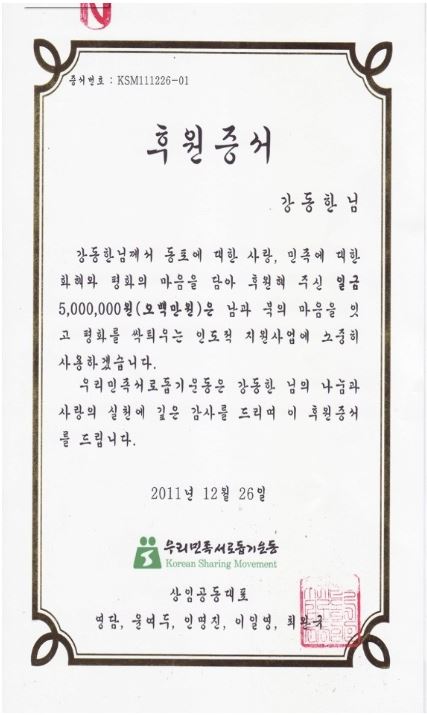 증서번호 : KSM111226-01
후원증서
강동한님
강동한님께서 동포에 대한 사랑, 민족에 대한
화해와 평화의 마음을 담아 후원해 주신 일금
5,000,000원(오백만원)은 남과 북의 마음을 잇
고 평화를 싹틔우는 인도적 지원사업에 소중히
사용하겠습니다.
우리민족서로돕기운동은 강동한 님의 나눔과
사랑의 실현에 깊은 감사를 드리며 이 후원증서
를 드립니다.
2011년 12월 26일
우리민족서로돕기운동
Korean Sharing Movement
상임공동대표
영담, 윤여두, 인명진, 이일영, 최완규